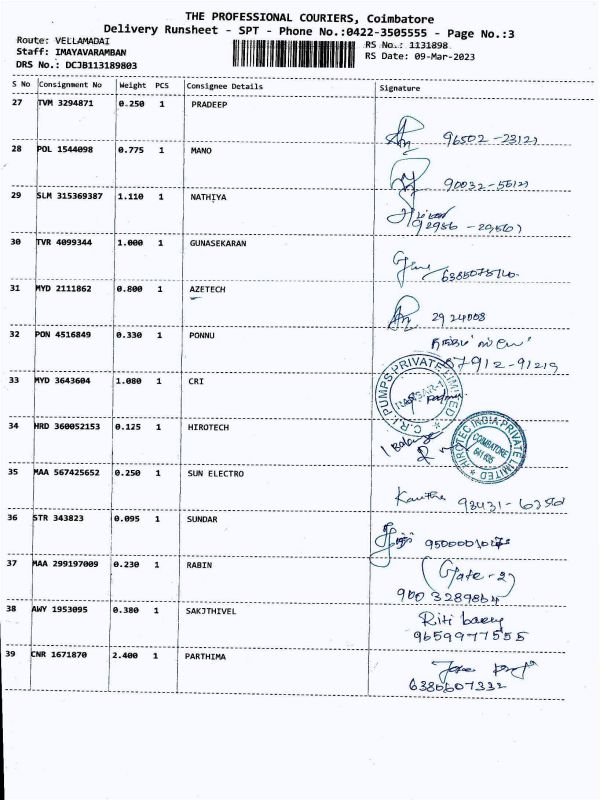 THE PROFESSIONAL COURIERS, Coimbatore
Delivery Runsheet - SPT - Phone No.:0422-3505555 - Page No.:3
Route: VELLAMADAI RS No.: 1131898
Staff: IMAYAVARAMBAN RS Date: 09-Mar-2023
DRS No.: DCJB113189803
S No Consignment No Weight PCS Consignee Details Signature
27 TVM 3294871 0.250 1 PRADEEP
28 POL 1544098 0.775 1 MANO
29 SLM 315369387 1.110 1 NATHIYA
30 TVR 4099344 1.000 1 GUNASEKARAN
31 MYD 2111862 0.800 1 AZETECH
29 24008
32 PON 4516849 0.330 1 PONNU
33 MYD 3643604 1.080 1 CRI
C.R.I. PUMPS PRIVATE LIMITED
34 HRD 360052153 0.125 1 HIROTECH
HIROTEC INDIA PRIVATE LIMITED
COIMBATORE
35 MAA 567425652 0.250 1 SUN ELECTRO
36 STR 343823 0.095 1 SUNDAR
37 MAA 299197009 0.230 1 RABIN
(Gate-2)
900 3289864
38 AWY 1953095 0.380 1 SAKJTHIVEL
9659977555
39 CNR 1671870 2.400 1 PARTHIMA
6380607332